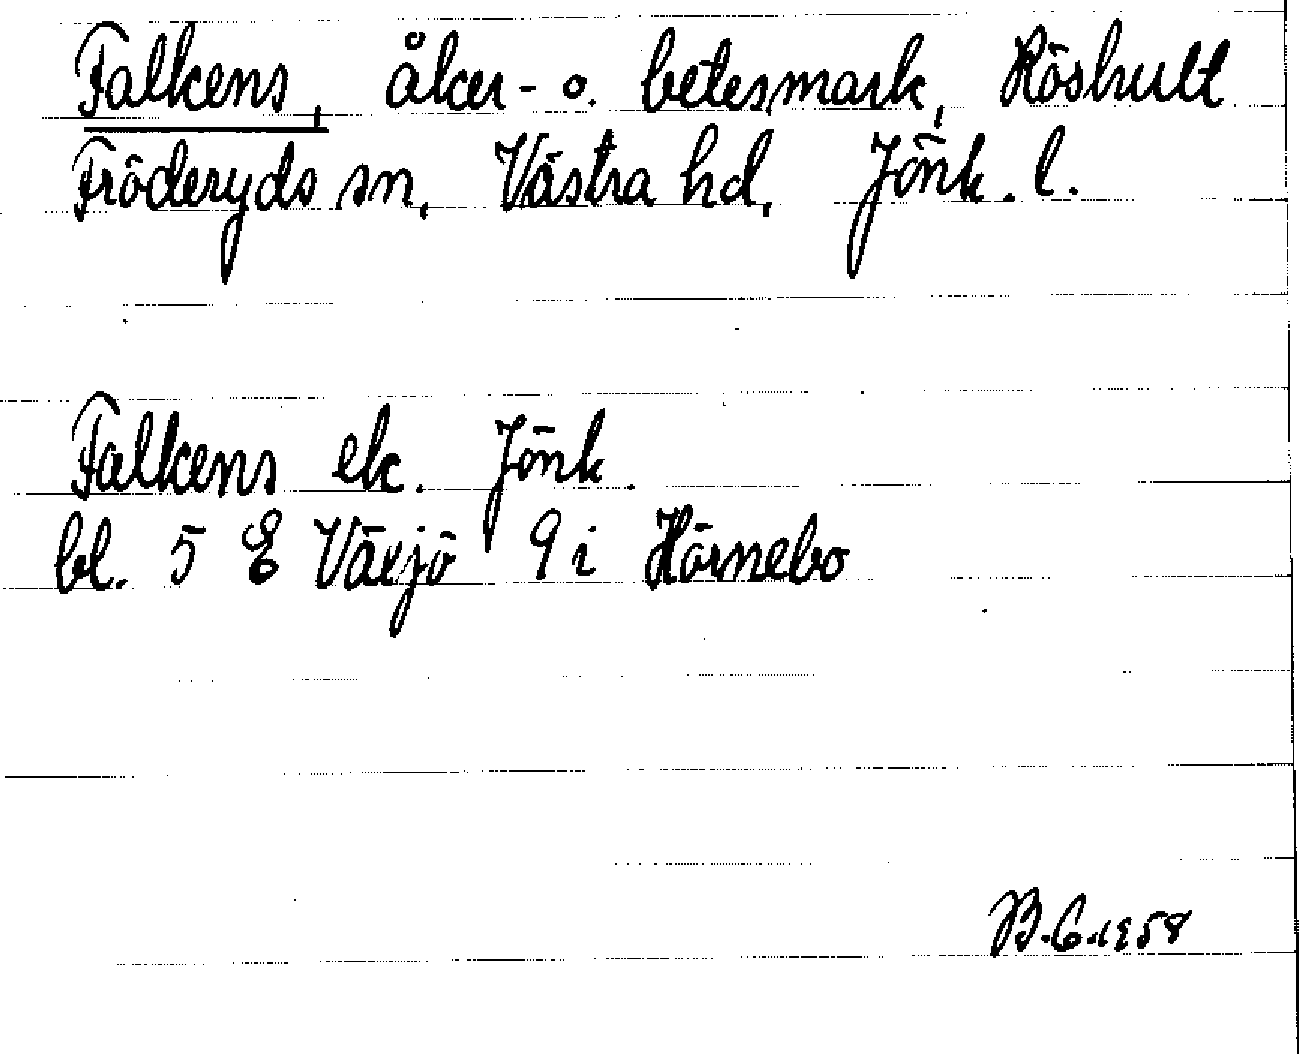 Falkens, åker- o. betesmark, Höshult
Fröderyds sn, Västra hd, Jönk. l.
Falkens ek. Jönk.
bl. 5 E Växjö 9 i Hörnebo
B.G. 1958